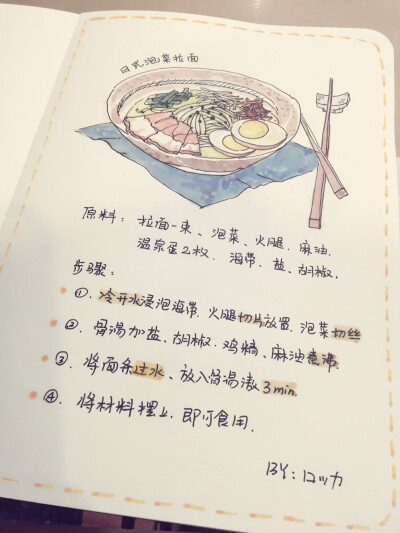 日式泡菜拉面
原料：拉面一束、泡菜、火腿、麻油、
温泉蛋2枚、海带、盐、胡椒、
步骤：
①、冷开水浸泡海带、火腿切片放置、泡菜切丝
②、骨汤加盐、胡椒、鸡精、麻油煮沸、
③、将面条过水、放入骨汤滚3min、
④、将材料摆上、即可食用、
BY：口ツ力